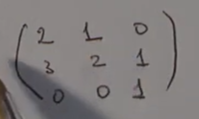 2 1 0
3 2 1
0 0 1